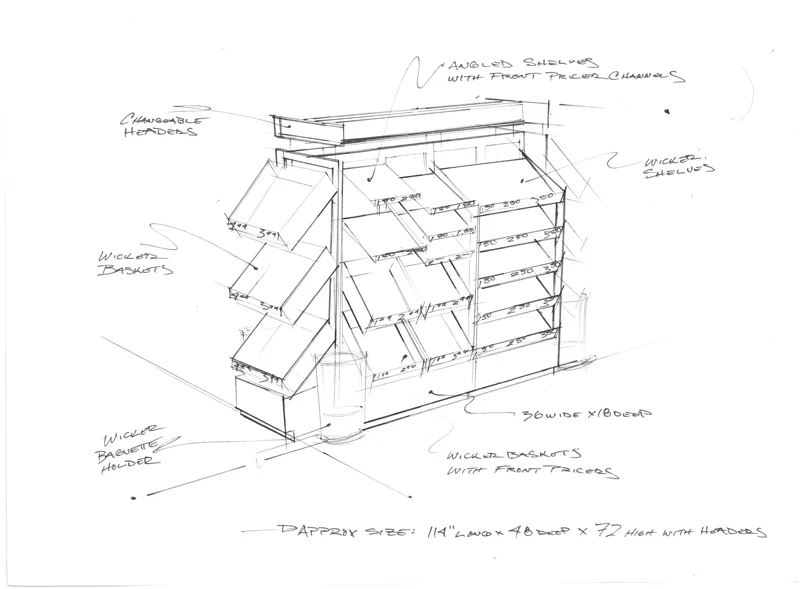 ANGLED SHELVES
WITH FRONT PRICER CHANNELS
CHANGEABLE
HEADERS
WICKER
SHELVES
WICKER
BASKETS
WICKER
BAGUETTE
HOLDER
36 WIDE X 18 DEEP
WICKER BASKETS
WITH FRONT PRICERS
APPROX SIZE: 114" LONG X 48 DEEP X 72 HIGH WITH HEADERS